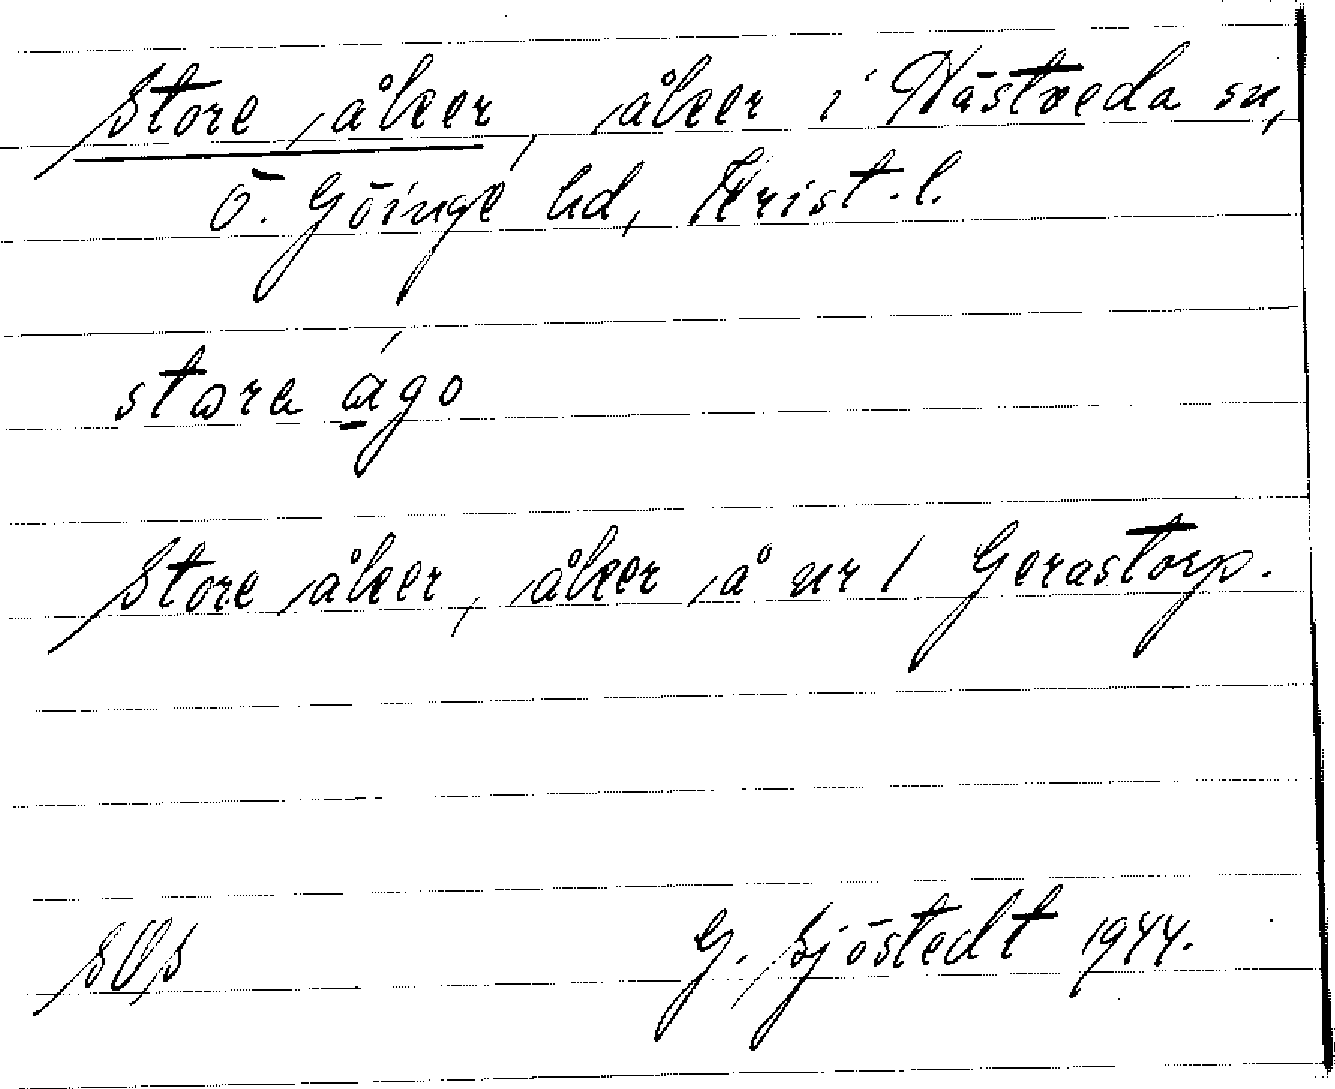 Store åker, åker i Hästveda sn,
Ö. Göinge hd, Krist. l.
stora ágo
Store åker, åker å nr 1 Gerastorp.
G. Sjöstedt 1944.